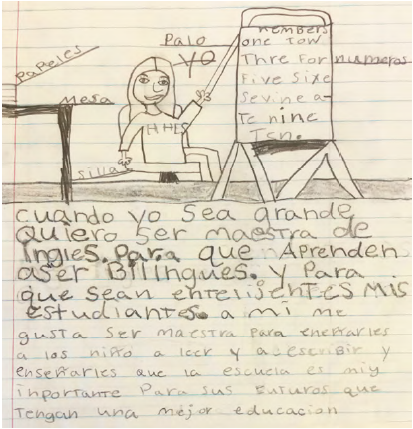 numbers
Palo
one Tow
YO
Thre For numeros
Papeles
Five Sixe
mesa
Sevine a-
te nine
Ten.
silla
cuando yo sea grande
quiero ser maestra de
ingles. Para que Aprenden
aser Bilingues. y Para
que sean entelijentes Mis
estudiantes. a mi me
gusta ser maestra para eneñarles
a los niño a leer y a escribir y
enseñarles que la escuela es miy
inportante Para sus futuros que
tengan una mejor educacion